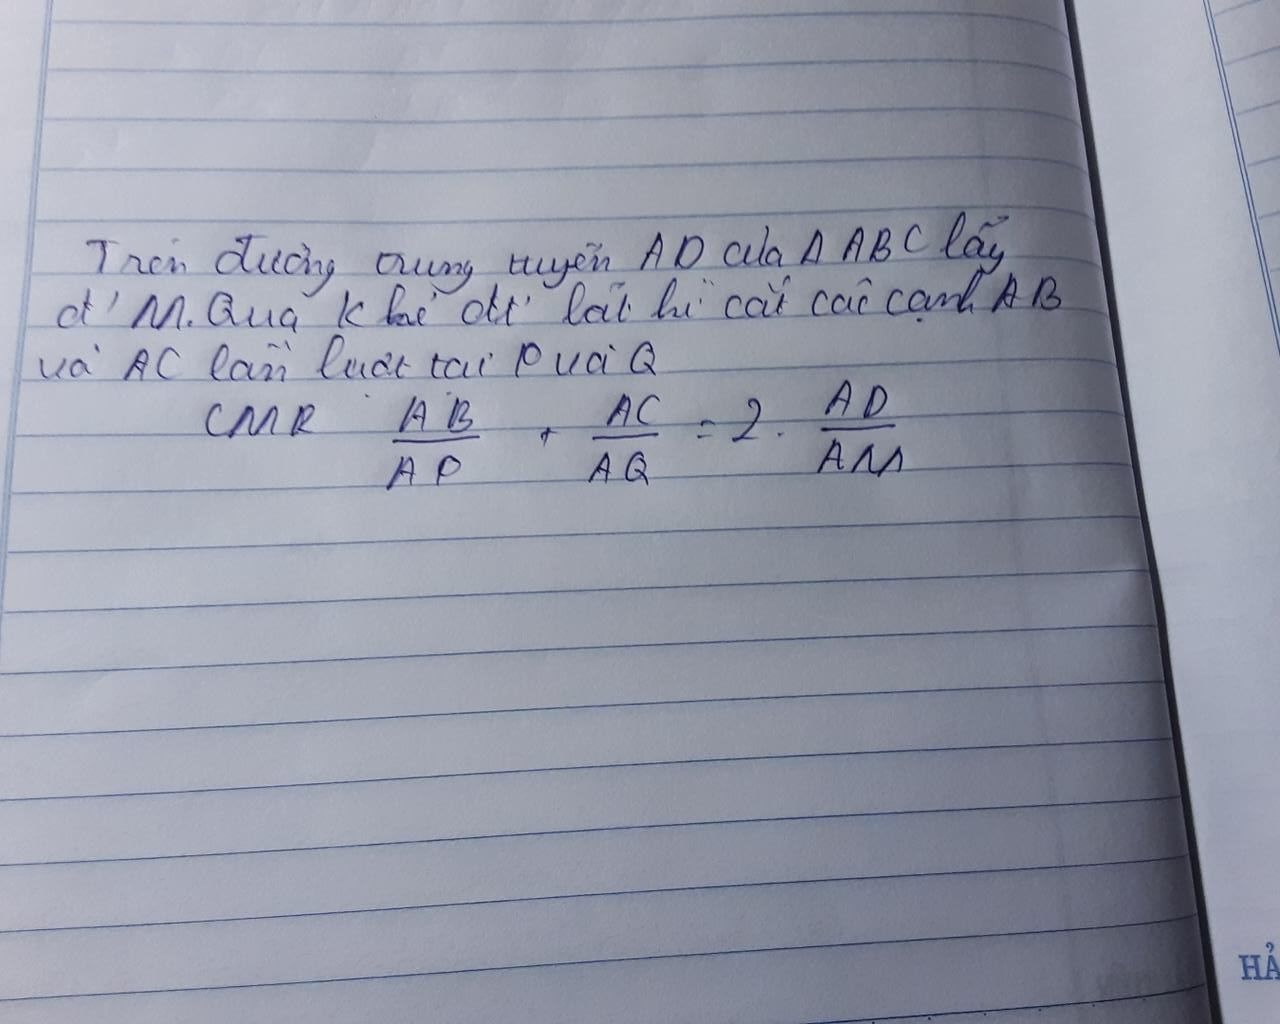 Trên đường trung tuyến AD của Δ ABC lấy
đ' M. Qua K kẻ đt' bất kì cắt các cạnh AB
và AC lần lượt tại P và Q
CMR AB/AP + AC/AQ = 2. AD/AM
HẢ